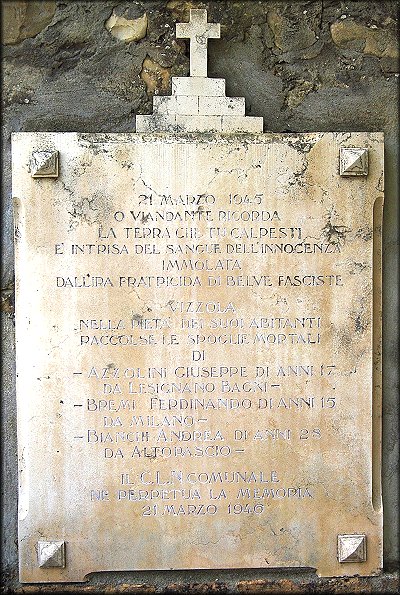 21 MARZO 1945
O VIANDANTE RICORDA
LA TERRA CHE TU CALPESTI
E' INTRISA DEL SANGUE DELL'INNOCENZA
IMMOLATA
DALL'IRA FRATRICIDA DI BELVE FASCISTE
VIZZOLA
NELLA PIETA' DEI SUOI ABITANTI
RACCOLSE LE SPOGLIE MORTALI
DI
- AZZOLINI GIUSEPPE DI ANNI 17
DA LESIGNANO BAGNI -
- BREMI FERDINANDO DI ANNI 15
DA MILANO -
- BIANCHI ANDREA DI ANNI 28
DA ALTOPASCIO -
IL C.L.N. COMUNALE
NE PERPETUA LA MEMORIA
21 MARZO 1946